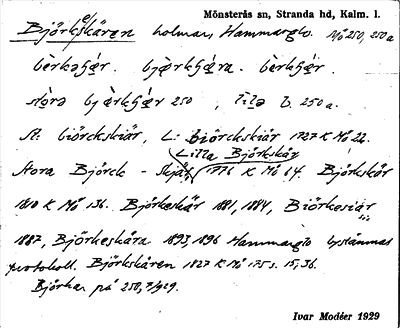 Mönsterås sn, Stranda hd, Kalm. l.
Björkeskären holmar, Hammarglo. Nö 250, 250 a
bèrkəʃǽr. bjœ̀rkʃǽra. bèrkʃǽr.
stòrə bjœ̀rkʃǽr 250, lìlə b. 250 a.
St. biörckskiär, L: biörckskiär 1727 K Mö 22.
Lilla Björkskär
Stora Björck - Skjär 1776 K Mö 64. Björkskär
1810 K Mö 136. Björkeskär 1881, 1884, Biörkesiär
1887, Björkeskära 1893, 1896 Hammarglo bystämmas
protokoll. Björkskären 1827 K Mö 175 s. 15, 36.
Björkar på 250, 7/929.
Ivar Modéer 1929